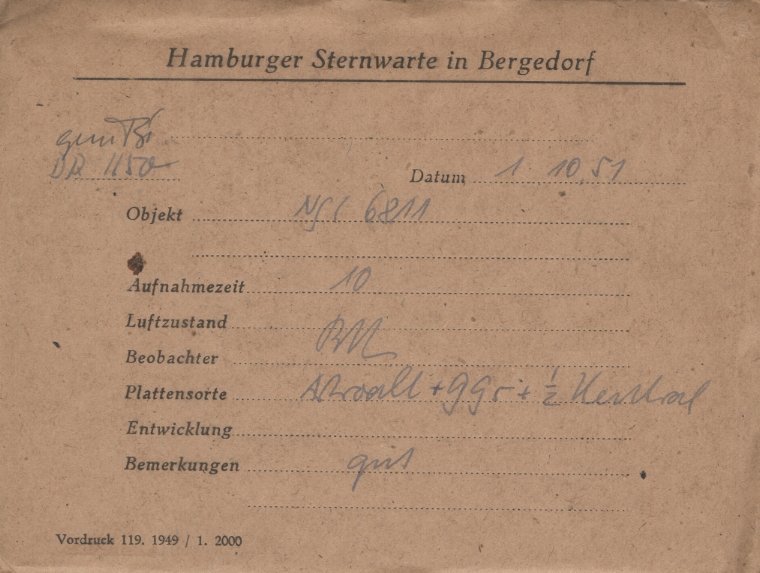 Hamburger Sternwarte in Bergedorf
Datum 1. 10. 51
Objekt NGC 6811
Aufnahmezeit 10
Luftzustand
Beobachter
Plattensorte + ½
Entwicklung
Bemerkungen gut
Vordruck 119. 1949 / 1. 2000